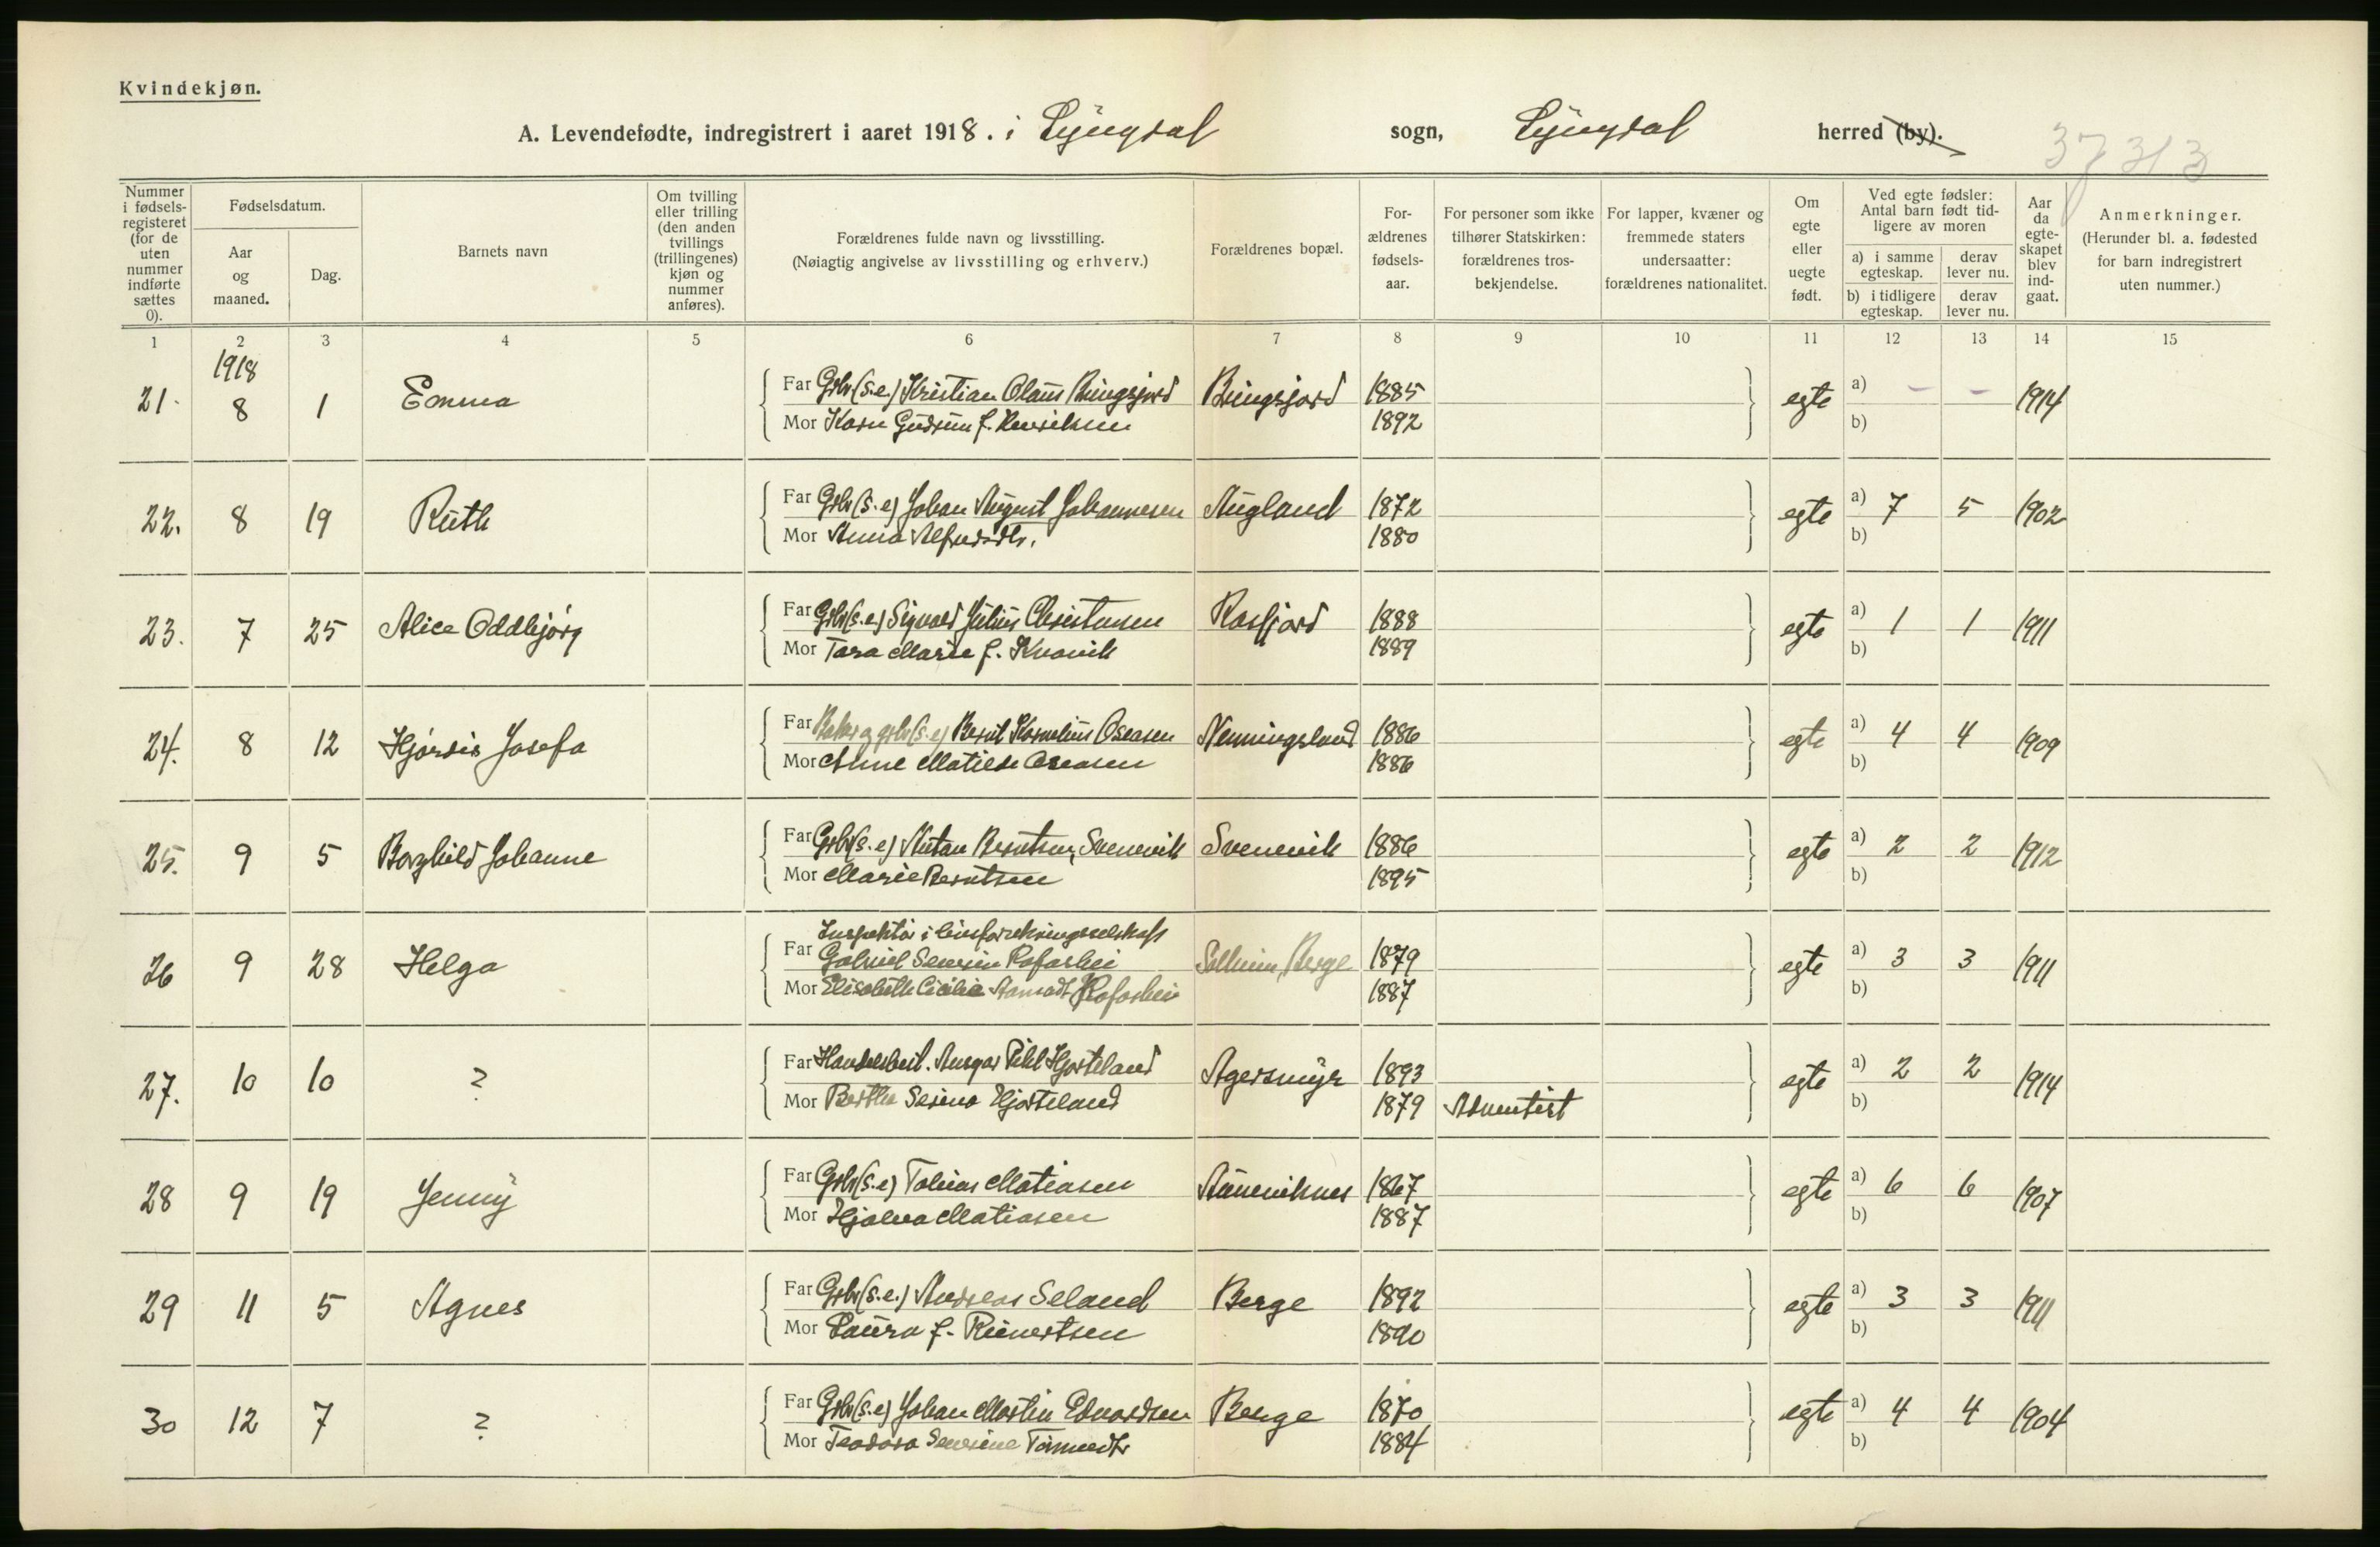 Kvindekjøn.
A. Levendefødte, indregistrert i aaret 1918. i Lyngdal sogn, Lyngdal herred (by).
37313
Nummer i fødselsregisteret (for de uten nummer indførte sættes 0).
Fødselsdatum.
Aar og maaned.
Dag.
Barnets navn
Om tvilling eller trilling (den anden tvillings (trillingenes) kjøn og nummer anføres).
Forældrenes fulde navn og livsstilling.
(Nøiagtig angivelse av livsstilling og erhverv.)
Forældrenes bopæl.
Forældrenes fødselsaar.
For personer som ikke tilhører Statskirken: forældrenes trosbekjendelse.
For lapper, kvæner og fremmede staters undersaatter: forældrenes nationalitet.
Om egte eller uegte født.
Ved egte fødsler: Antal barn født tidligere av moren
a) i samme egteskap.
derav lever nu.
b) i tidligere egteskap.
derav lever nu.
Aar da egteskapet blev indgaat.
Anmerkninger.
(Herunder bl. a. fødested for barn indregistrert uten nummer.)
1 2 3 4 5 6 7 8 9 10 11 12 13 14 15
1918
21. 8 1 Emma Far Grbr (s.e.) Kristian Olaus Bringsjord Bringsjord 1885 egte a) - - 1914
Mor Karn Gudrun f. Henriksen 1892 b)
22. 8 19 Ruth Far Grbr (s.e) Johan August Johannesen Augland 1872 egte a) 7 5 1902
Mor Anna Alfredsdtr. 1880 b)
23. 7 25 Alice Oddbjørg Far Grbr (s.e) Sigvald Julius Christensen Rosfjord 1888 egte a) 1 1 1911
Mor Tara Marie f. Kvavik 1889 b)
24. 8 12 Hjørdis Josefa Far Baker og grbr (s.e) Bernt Kornelius Oseasen Henningsland 1886 egte a) 4 4 1909
Mor Anne Matilde Oseasen 1886 b)
25. 9 5 Borghild Johanne Far Grbr (s.e) Anton Berntsen, Svenevik Svenevik 1886 egte a) 2 2 1912
Mor Marie Berntsen 1895 b)
Inspektør i livsforsikringsselskap
26 9 28 Helga Far Gabriel Severin Rafoshei Solheim, Berge 1879 egte a) 3 3 1911
Mor Elisabeth Cicilie Rafoshei 1887 b)
27. 10 10 ? Far Handelsbest. Ansgar Pihl Hjorteland Agersmyr 1893 egte a) 2 2 1914
Mor Berthe Serina Hjorteland 1879 Adventist b)
28 9 19 Jenny Far Grbr (s.e) Tobias Matiasen Auneviknes 1867 egte a) 6 6 1907
Mor Hjalva Matiasen 1887 b)
29 11 5 Agnes Far Grbr (s.e.) Andreas Seland Berge 1892 egte a) 3 3 1911
Mor Laura f. Reinertsen 1890 b)
30 12 7 ? Far Grbr (s.e) Johan Martin Edvardsen Berge 1870 egte a) 4 4 1904
Mor Teodora Severine Tønnesdtr 1884 b)